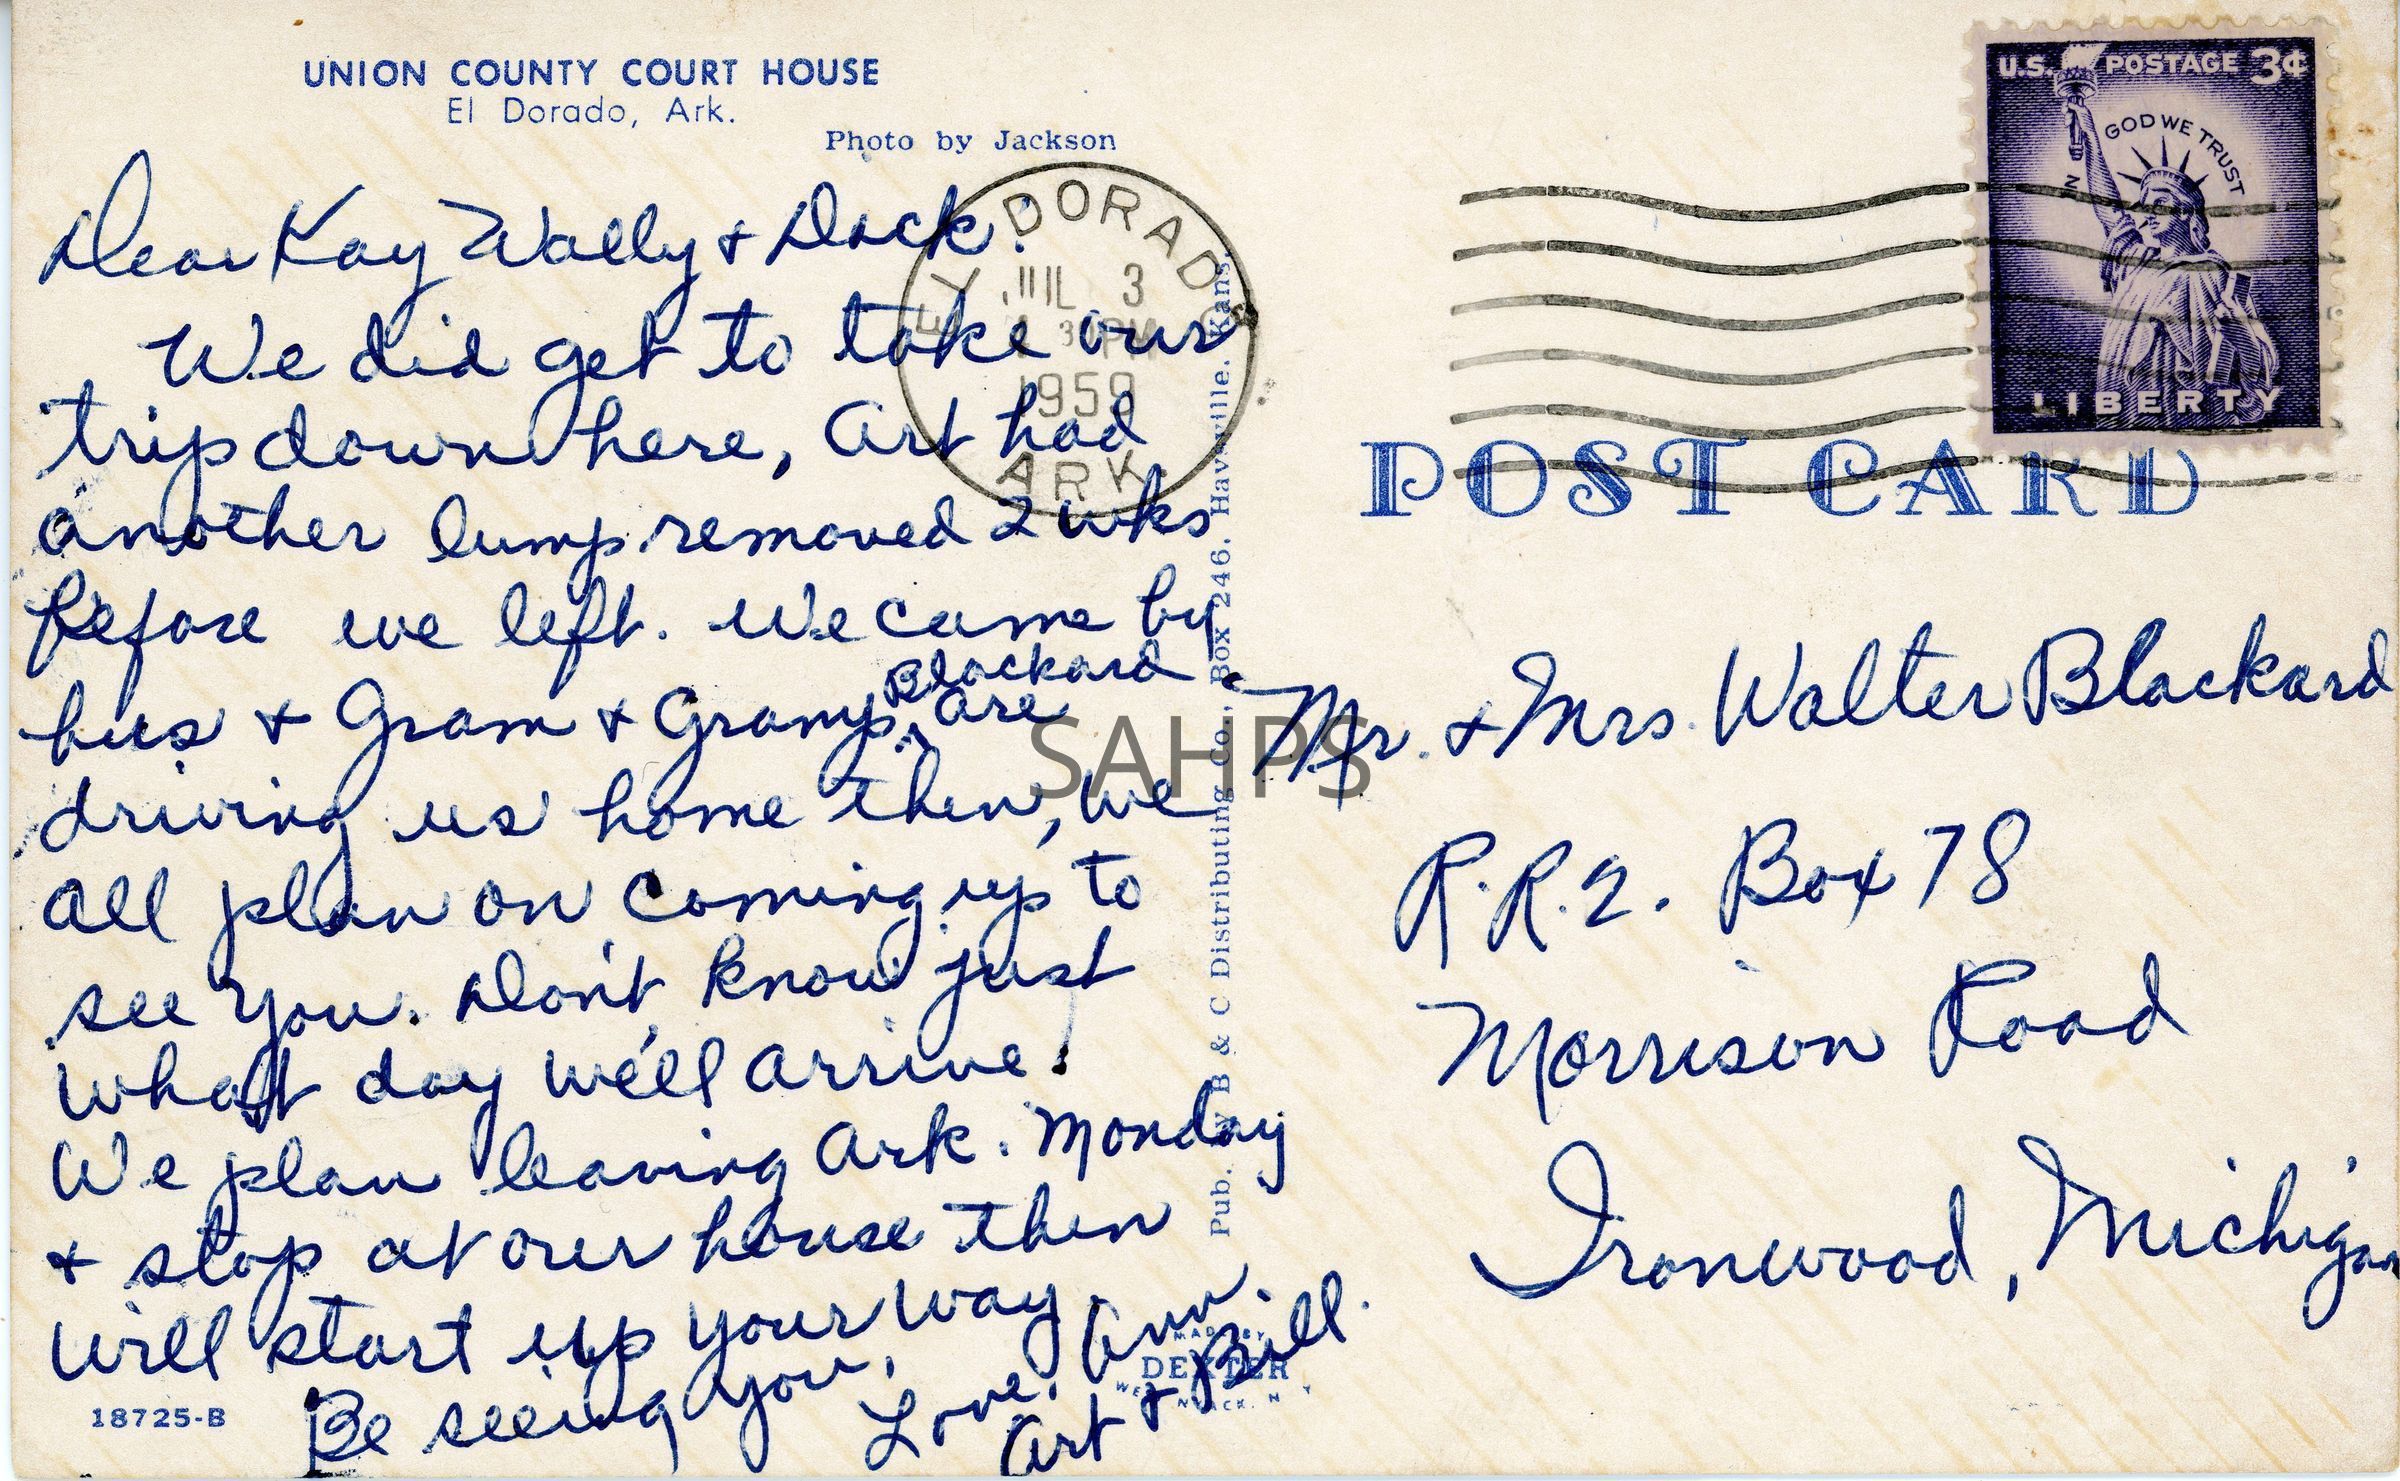 UNION COUNTY COURT HOUSE
El Dorado, Ark.
Photo by Jackson
Dear Kay Wally & Dack:
We did get to take our
trip down here, Art had
another lump removed 2 wks
before we left. We came by
bus & Gram & Gramps Blackard are
driving us home then, we
all plan on coming up to
see you. Don't know just
what day we'll arrive!
We plan leaving Ark. Monday
& stop at our house then
will start up your way.
Be seeing you,
Love, Ann.
Art & Bill.
18725-B
EL DORADO
JUL 3
30 PM
1959
ARK.
Pub. by B & C Distributing Co., Box 246. Haysville. Kans.
MADE BY
DEXTER
WEST NYACK, N Y
SAHPS
U.S. POSTAGE 3¢
IN GOD WE TRUST
LIBERTY
POST CARD
Mr. & Mrs. Walter Blackard
R.R. 2. Box 78
Morrison Road
Ironwood, Michigan